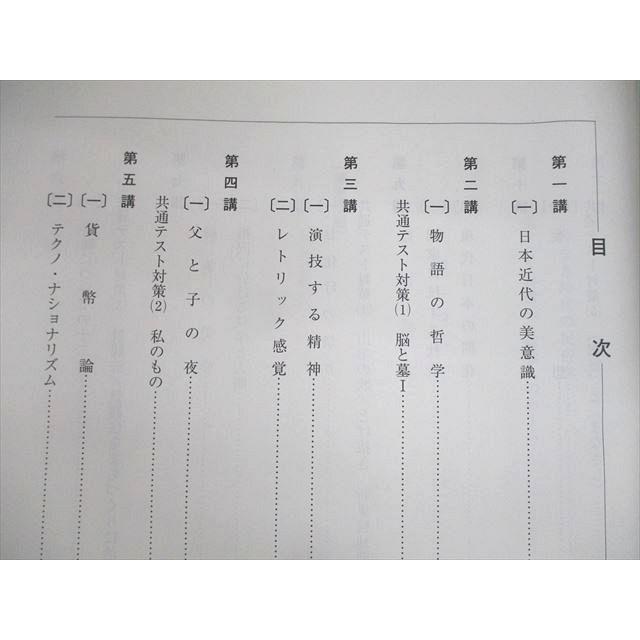 目次
第一講
〔一〕日本近代の美意識
第二講
〔一〕物語の哲学
共通テスト対策⑴ 脳と墓Ⅰ
第三講
〔一〕演技する精神
〔二〕レトリック感覚
第四講
〔一〕父と子の夜
共通テスト対策⑵ 私のもの
第五講
〔一〕貨幣論
〔二〕テクノ・ナショナリズム